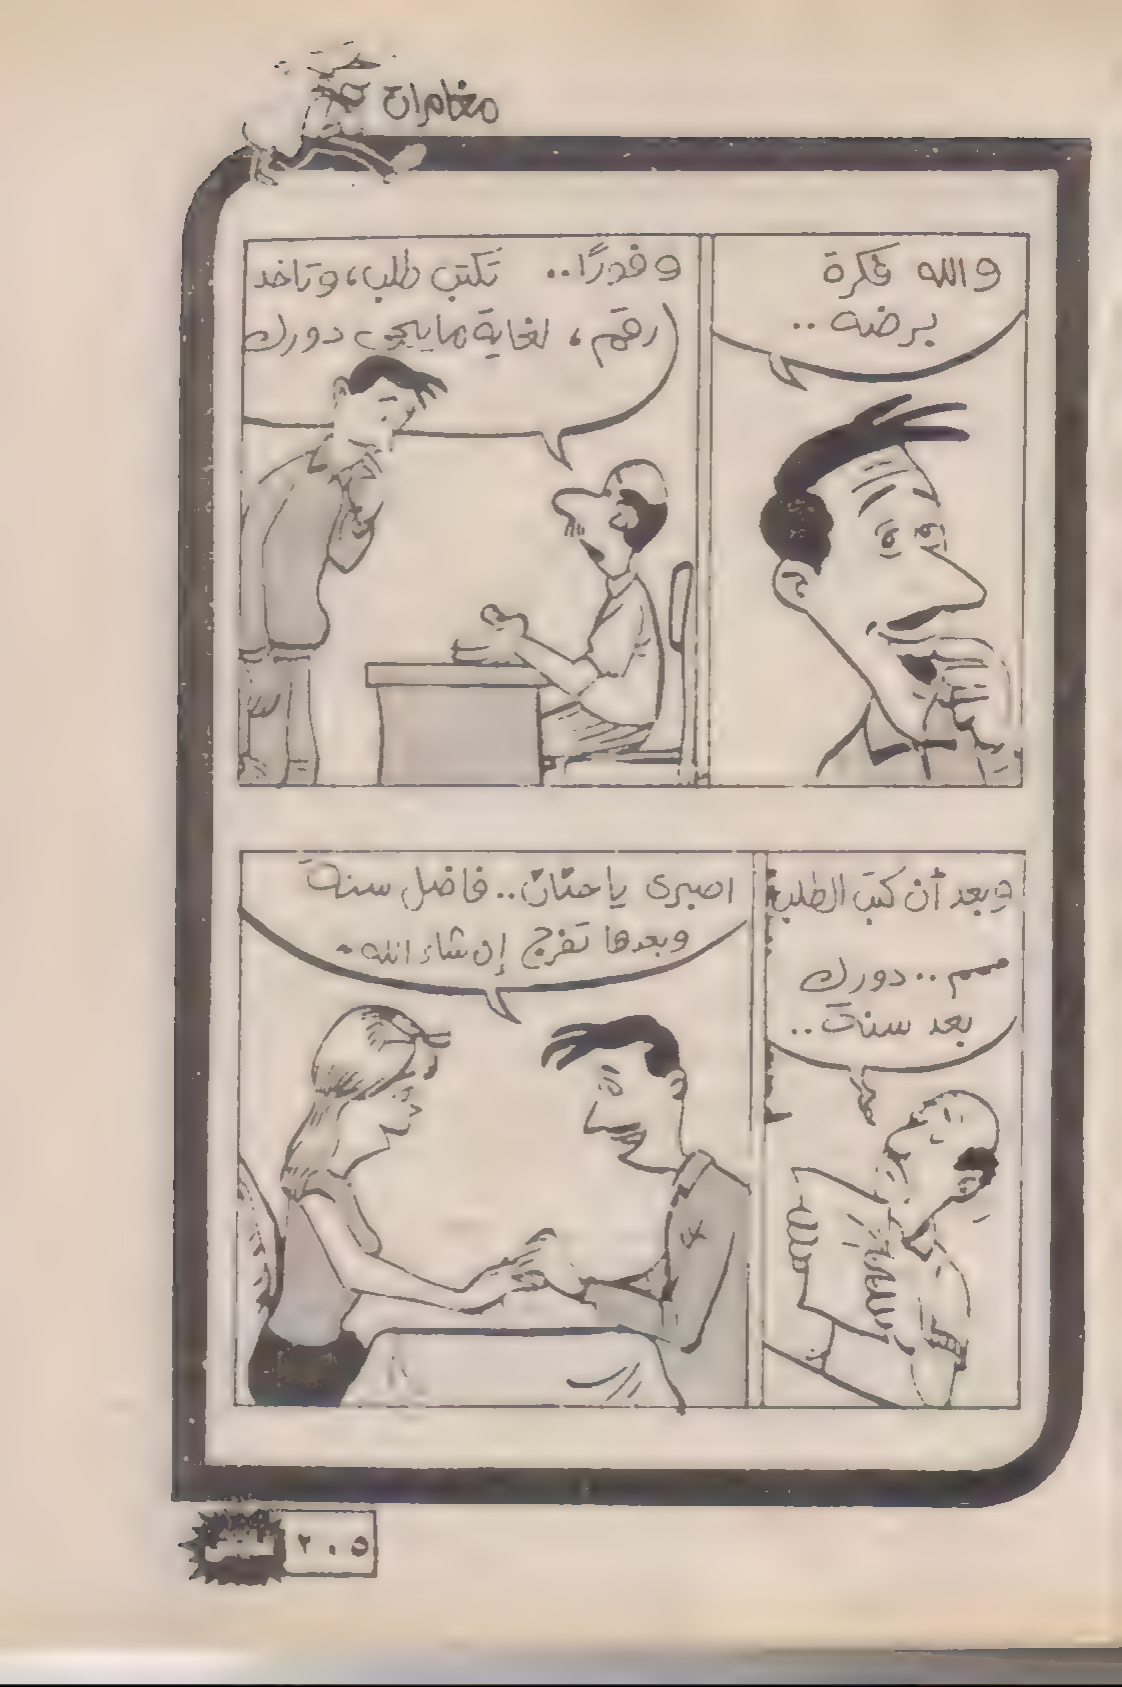 مغامرات
والله فكرة
برضه..
وفورًا.. تكتب طلب، وتاخد
رقم، لغاية مايجى دورك
وبعد أن كتب الطلب
ممم.. دورك
بعد سنة..
اصبرى ياحنان.. فاضل سنة
وبعدها تفرج إن شاء الله.
٢٠٥